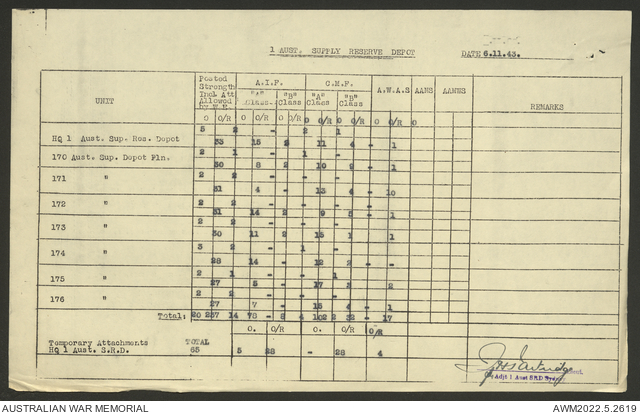 1 AUST. SUPPLY RESERVE DEPOT
DATE 6.11.43.
UNIT Posted Strength Incl. Att Allowed by W.E. A.I.F. "A" Class "B" Class C.M.F. "A" Class "B" Class A.W.A.S AANS AANNS REMARKS
O O/R O O/R O O/R O O/R O O/R O
5 2 - 2 1
HQ 1 Aust. Sup. Res. Depot 33 15 2 11 4 - 1
2 1 - 1
170 Aust. Sup. Depot Pln. 30 8 2 10 - 1
2 2 - - -
171 " 31 4 - 13 4 - 10
2 2 - - -
172 " 31 14 2 9 5 - 1
2 2 - - -
173 " 30 11 2 15 1 1
3 2 - 1
174 " 28 14 - 12 2 - -
2 1 - - 1
175 " 27 5 - 17 3 2
2 2 - - -
176 " 27 7 - 15 4 - 1
Total: 20 237 14 78 - 8 4 102 2 32 - 17
O. O/R O. O/R O/R
Temporary Attachments TOTAL
HQ 1 Aust. S.R.D. 65 5 28 - 28 4
AUSTRALIAN WAR MEMORIAL
AWM2022.5.2619